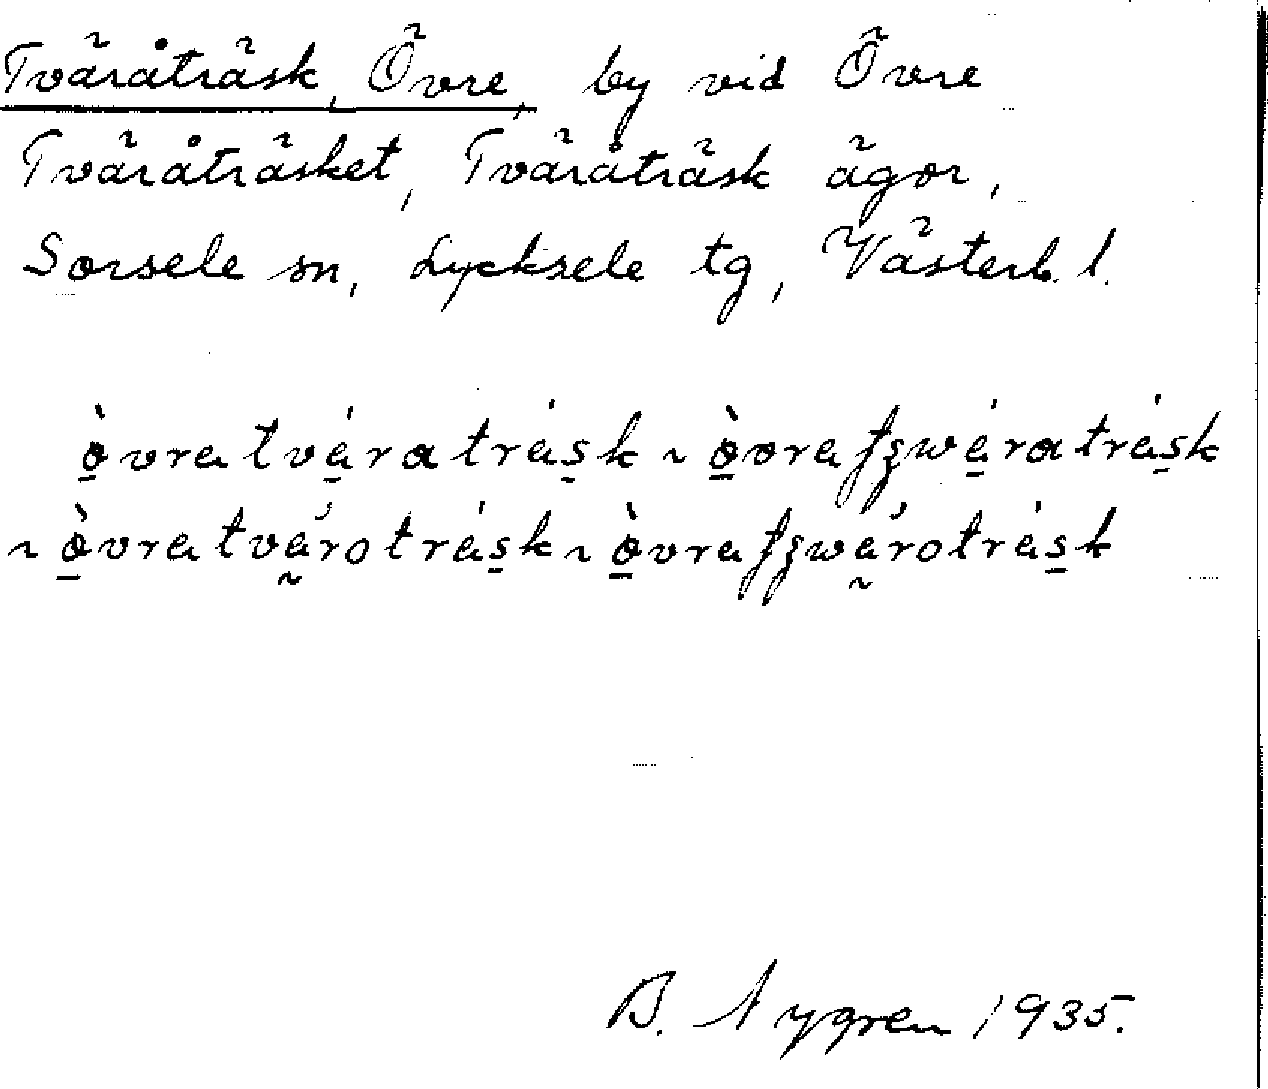 Tväråträsk, Övre, by vid Övre
Tväråträsket, Tväråträsk ägor,
Sorsele sn, Lycksele tg, Västerb. l.
ò̲vratvá̲ratrás̲k ~ ò̲vraʃʒwá̲ratrás̲k
~ ò̲vratvá̰rotrás̲k ~ ò̲vraʃʒwá̰rotrás̲k
B. Nygren 1935.